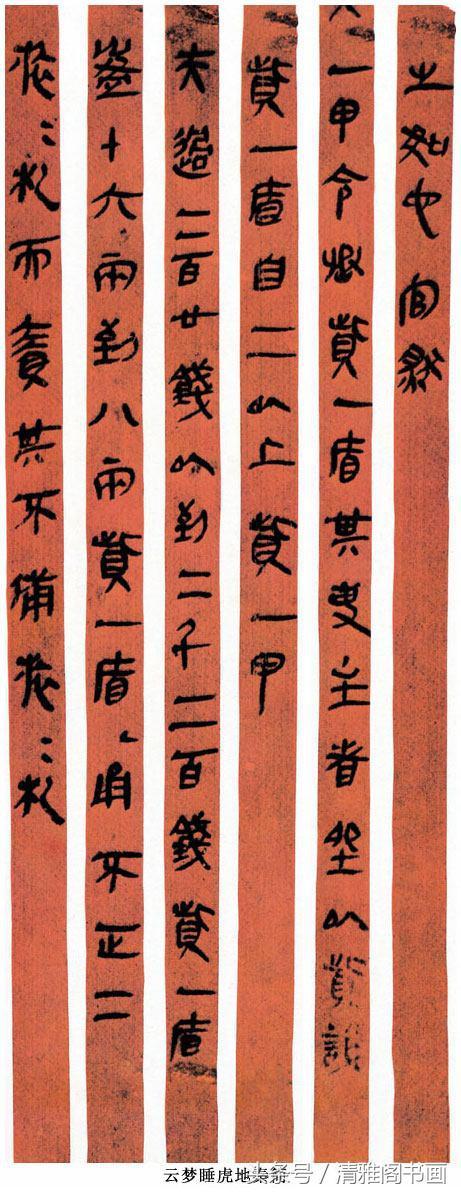 之如它官然
一甲令丞貲一盾其吏主者坐以貲誶
貲一盾自二以上貲一甲
夫過二百廿錢以到二千二百錢貲一盾
盈十六兩到八兩貲一盾甬不正二
旅=札而責其不備旅=札
云梦睡虎地秦簡
号／清雅阁书画